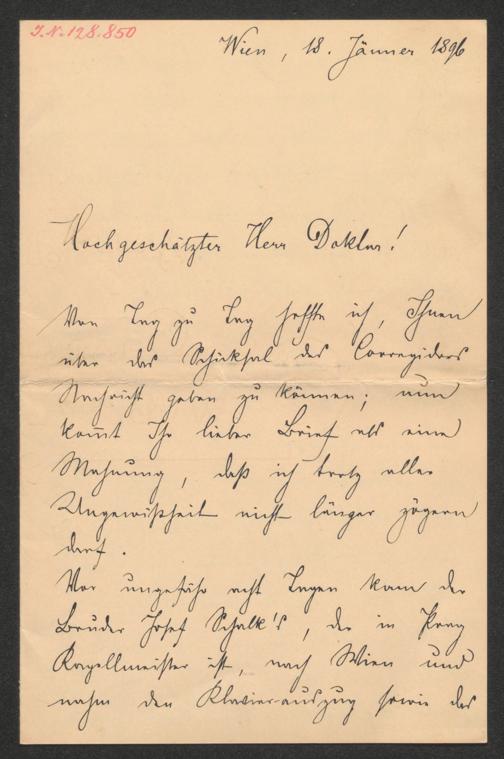 I.N. 128.850
Wien, 18. Jänner 1896
Hochgeschätzter Herr Doktor!
Von Tag zu Tag hoffte ich, Ihnen
über das Schicksal des Corregidors
Nachricht geben zu können; nun
kom̅t Ihr lieber Brief als eine
Mahnung, daß ich trotz aller
Ungewißheit nicht länger zögern
darf.
Vor ungefähr acht Tagen kam der
Bruder Josef Schalk's, der in Prag
Kapellmeister ist, nach Wien und
nahm den Klavierauszug sowie das